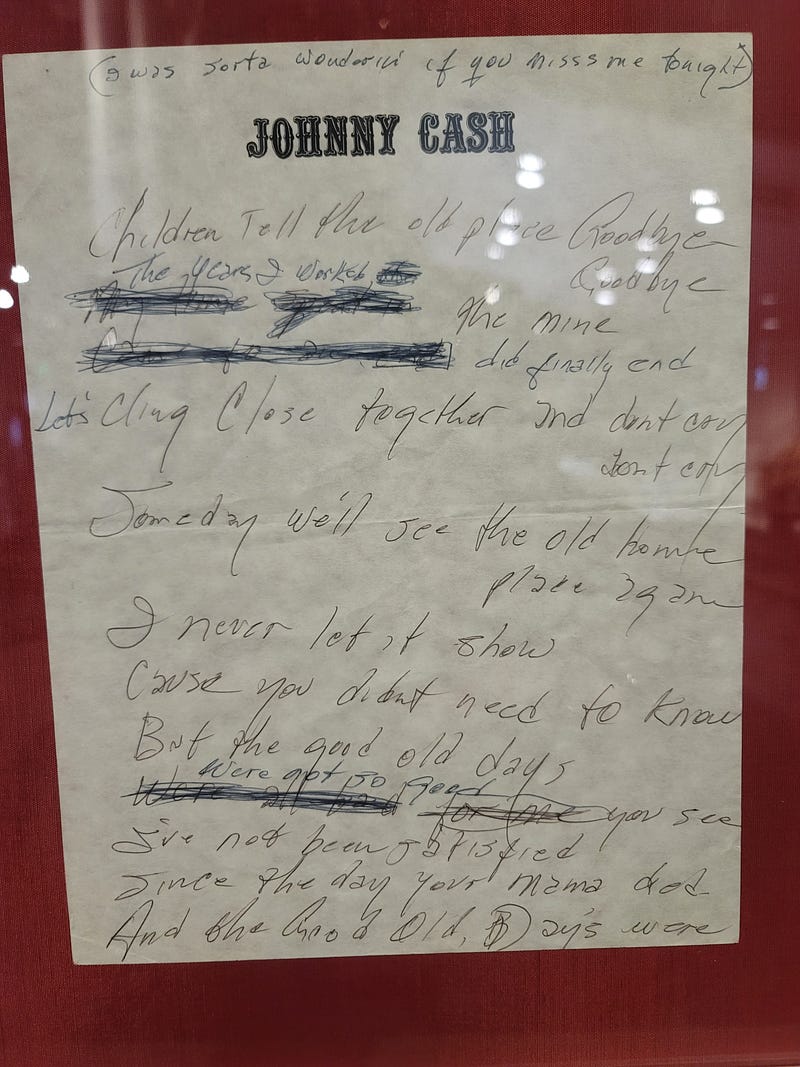 (I was sorta wonderin if you misss me tonight)
JOHNNY CASH
Children Tell the old place Goodbye
Goodbye
The years I worked
the mine
did finally end
Let's Cling Close together and dont cry
dont cry
Someday we'll see the old home
place again
I never let it show
Cause you didnt need to know
But the good old days
Were not so good
Were all bad for me you see
I've not been satisfied
Since the day your mama died
And the Good Old, Days were